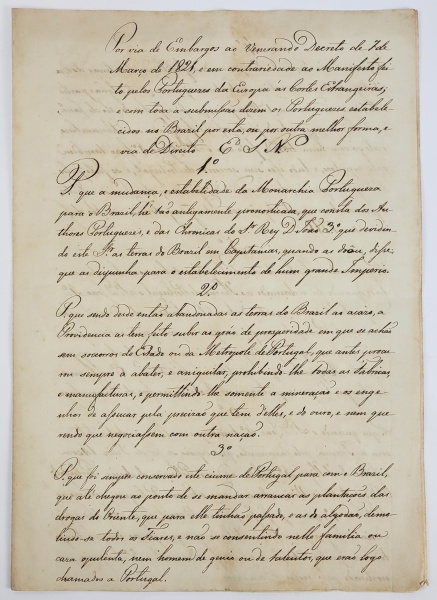 Por via de Embargos ao Venerando Decreto de 7 de
Março de 1821, e em contrariedade ao Manifesto fei
to pelos Portuguezes da Europa as Cortes Estrangeiras;
e com toda a submissão dizem os Portuguezes estabele
cidos no Brazil por esta, ou por outra melhor forma, e
via de Direito E. S. N.
1.º
P. que a mudança, e estabelidade da Monarchia Portugueza
para o Brazil, he tão antigamente pronosticada, que consta dos Au
thores Portuguezes, e das Chronicas do Sr. Rey D. João 3.º que dividin
do este Sr. as terras do Brazil em Capitanias, quando as doou, disse,
que as dispunha para o estabelecimento de hum grande Imperio.
2.º
P. que sendo desde então abandonadas as terras do Brazil ao acazo, a
Providencia as tem feito subir ao gráo de prosperidade em que se achão
sem socorros do Estado ou da Metropole de Portugal, que antes procu
rou sempre a abater, e aniquilar, prohibindo-lhe todas as fabricas,
e manufacturas, e permittindo-lhe somente a mineração e os enge
nhos de assucar pela precizão que tem delles, e do ouro, e nem que
rendo que negociassem com outra nação.
3.º
P. que foi sempre conservado este ciume de Portugal para com o Brazil,
que até chegou ao ponto de se mandar arrancar as plantações das
drogas do Oriente, que para elle tinhão passado, e as do algodão, demo
lindo-se todos os Teares, e não se consentindo nelle familia ou
caza opulenta, nem homem de genio ou de talentos, que erão logo
chamados a Portugal.